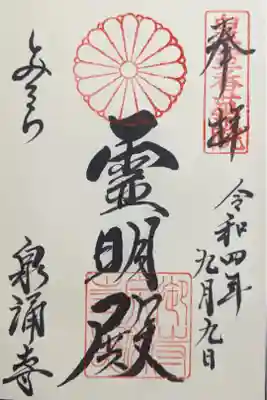 奉拝
令和四年
九月九日
霊明殿
泉涌寺